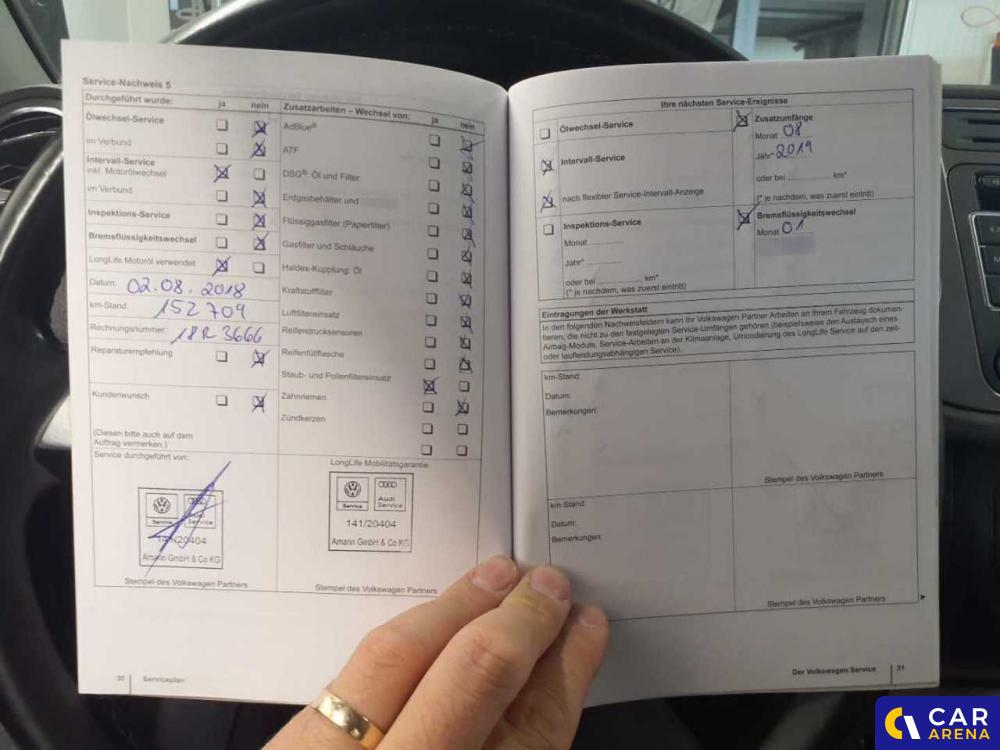 Service-Nachweis 5
Durchgeführt wurde: ja nein
Ölwechsel-Service
im Verbund
Intervall-Service
inkl. Motorölwechsel
im Verbund
Inspektions-Service
Bremsflüssigkeitswechsel
LongLife Motoröl verwendet
Datum: 02.08.2018
km-Stand: 152 709
Rechnungsnummer: 18R 3666
Reparaturempfehlung
Kundenwunsch
(Diesen bitte auch auf dem
Auftrag vermerken.)
Service durchgeführt von:
Service
Service
141/20404
Amann GmbH & Co KG
Stempel des Volkswagen Partners
Zusatzarbeiten – Wechsel von: ja nein
AdBlue®
ATF
DSG®: Öl und Filter
Erdgasbehälter und
Flüssiggasfilter (Papierfilter)
Gasfilter und Schläuche
Haldex-Kupplung: Öl
Kraftstofffilter
Luftfiltereinsatz
Reifendrucksensoren
Reifenfüllflasche
Staub- und Pollenfiltereinsatz
Zahnriemen
Zündkerzen
LongLife Mobilitätsgarantie:
Service
Audi
Service
141/20404
Amann GmbH & Co KG
Stempel des Volkswagen Partners
30 Serviceplan
Ihre nächsten Service-Ereignisse
Ölwechsel-Service
Intervall-Service
nach flexibler Service-Intervall-Anzeige
Inspektions-Service
Monat
Jahr*
oder bei km*
(* je nachdem, was zuerst eintritt)
Zusatzumfänge
Monat 08
Jahr* 2019
oder bei km*
(* je nachdem, was zuerst eintritt)
Bremsflüssigkeitswechsel
Monat 01
Eintragungen der Werkstatt
In den folgenden Nachweisfeldern kann Ihr Volkswagen Partner Arbeiten an Ihrem Fahrzeug dokumen-
tieren, die nicht zu den festgelegten Service-Umfängen gehören (beispielsweise den Austausch eines
Airbag-Moduls, Service-Arbeiten an der Klimaanlage, Umcodierung des LongLife Service auf den zeit-
oder laufleistungsabhängigen Service).
km-Stand:
Datum:
Bemerkungen:
Stempel des Volkswagen Partners
km-Stand:
Datum:
Bemerkungen:
Stempel des Volkswagen Partners
Der Volkswagen Service 31
CAR
ARENA